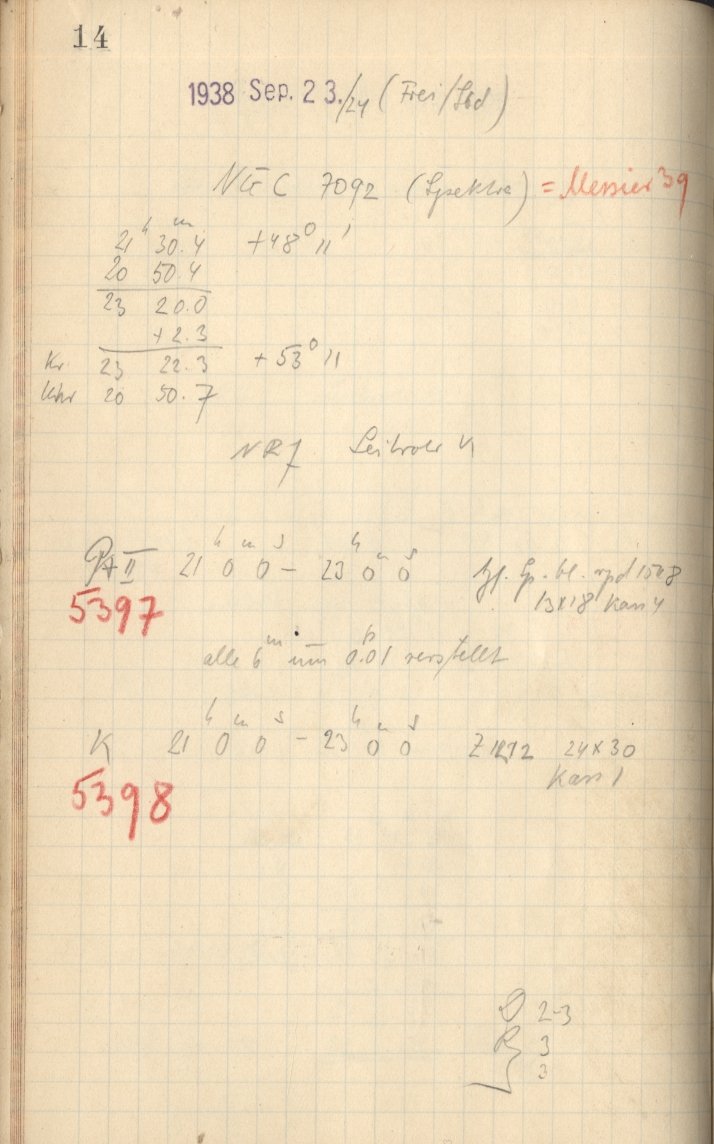 14
1938 Sep. 23./24 (Frei/Sbd)
NGC 7092 (Spektra) = Messier 39
21ʰ 30.4ᵐ +48° 11'
20 50.4
23 20.0
+2.3
Kr 23 22.3 +53° 11
Uhr 20 50.7
NR 7 Leitrohr K
PA II 21ʰ 0ᵐ 0ˢ – 23ʰ 0ᵐ 0ˢ Sp. bl. rpd 1588
5397 13x18 Kass 4
alle 6ᵐ um 0.01 verstellt
K 21ʰ 0ᵐ 0ˢ – 23ʰ 0ᵐ 0ˢ Z 1272 24x30
5398 Kass 1
D 2-3
R 3
3